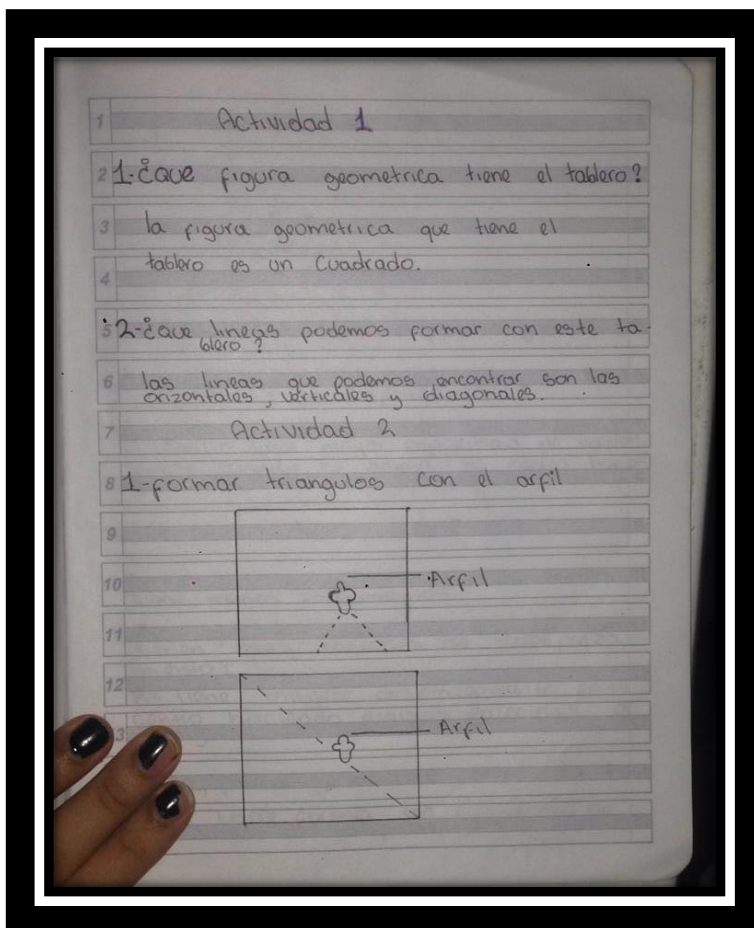 1 Actividad 1
2 1-¿Que figura geometrica tiene el tablero?
3 la figura geometrica que tiene el
tablero es un Cuadrado.
4
5 2-¿Que lineas podemos formar con este ta-
blero?
6 las lineas que podemos encontrar son las
orizontales, verticales y diagonales.
7 Actividad 2
8 1-formar triangulos con el arfil
9
10 Arfil
11
12
3 Arfil